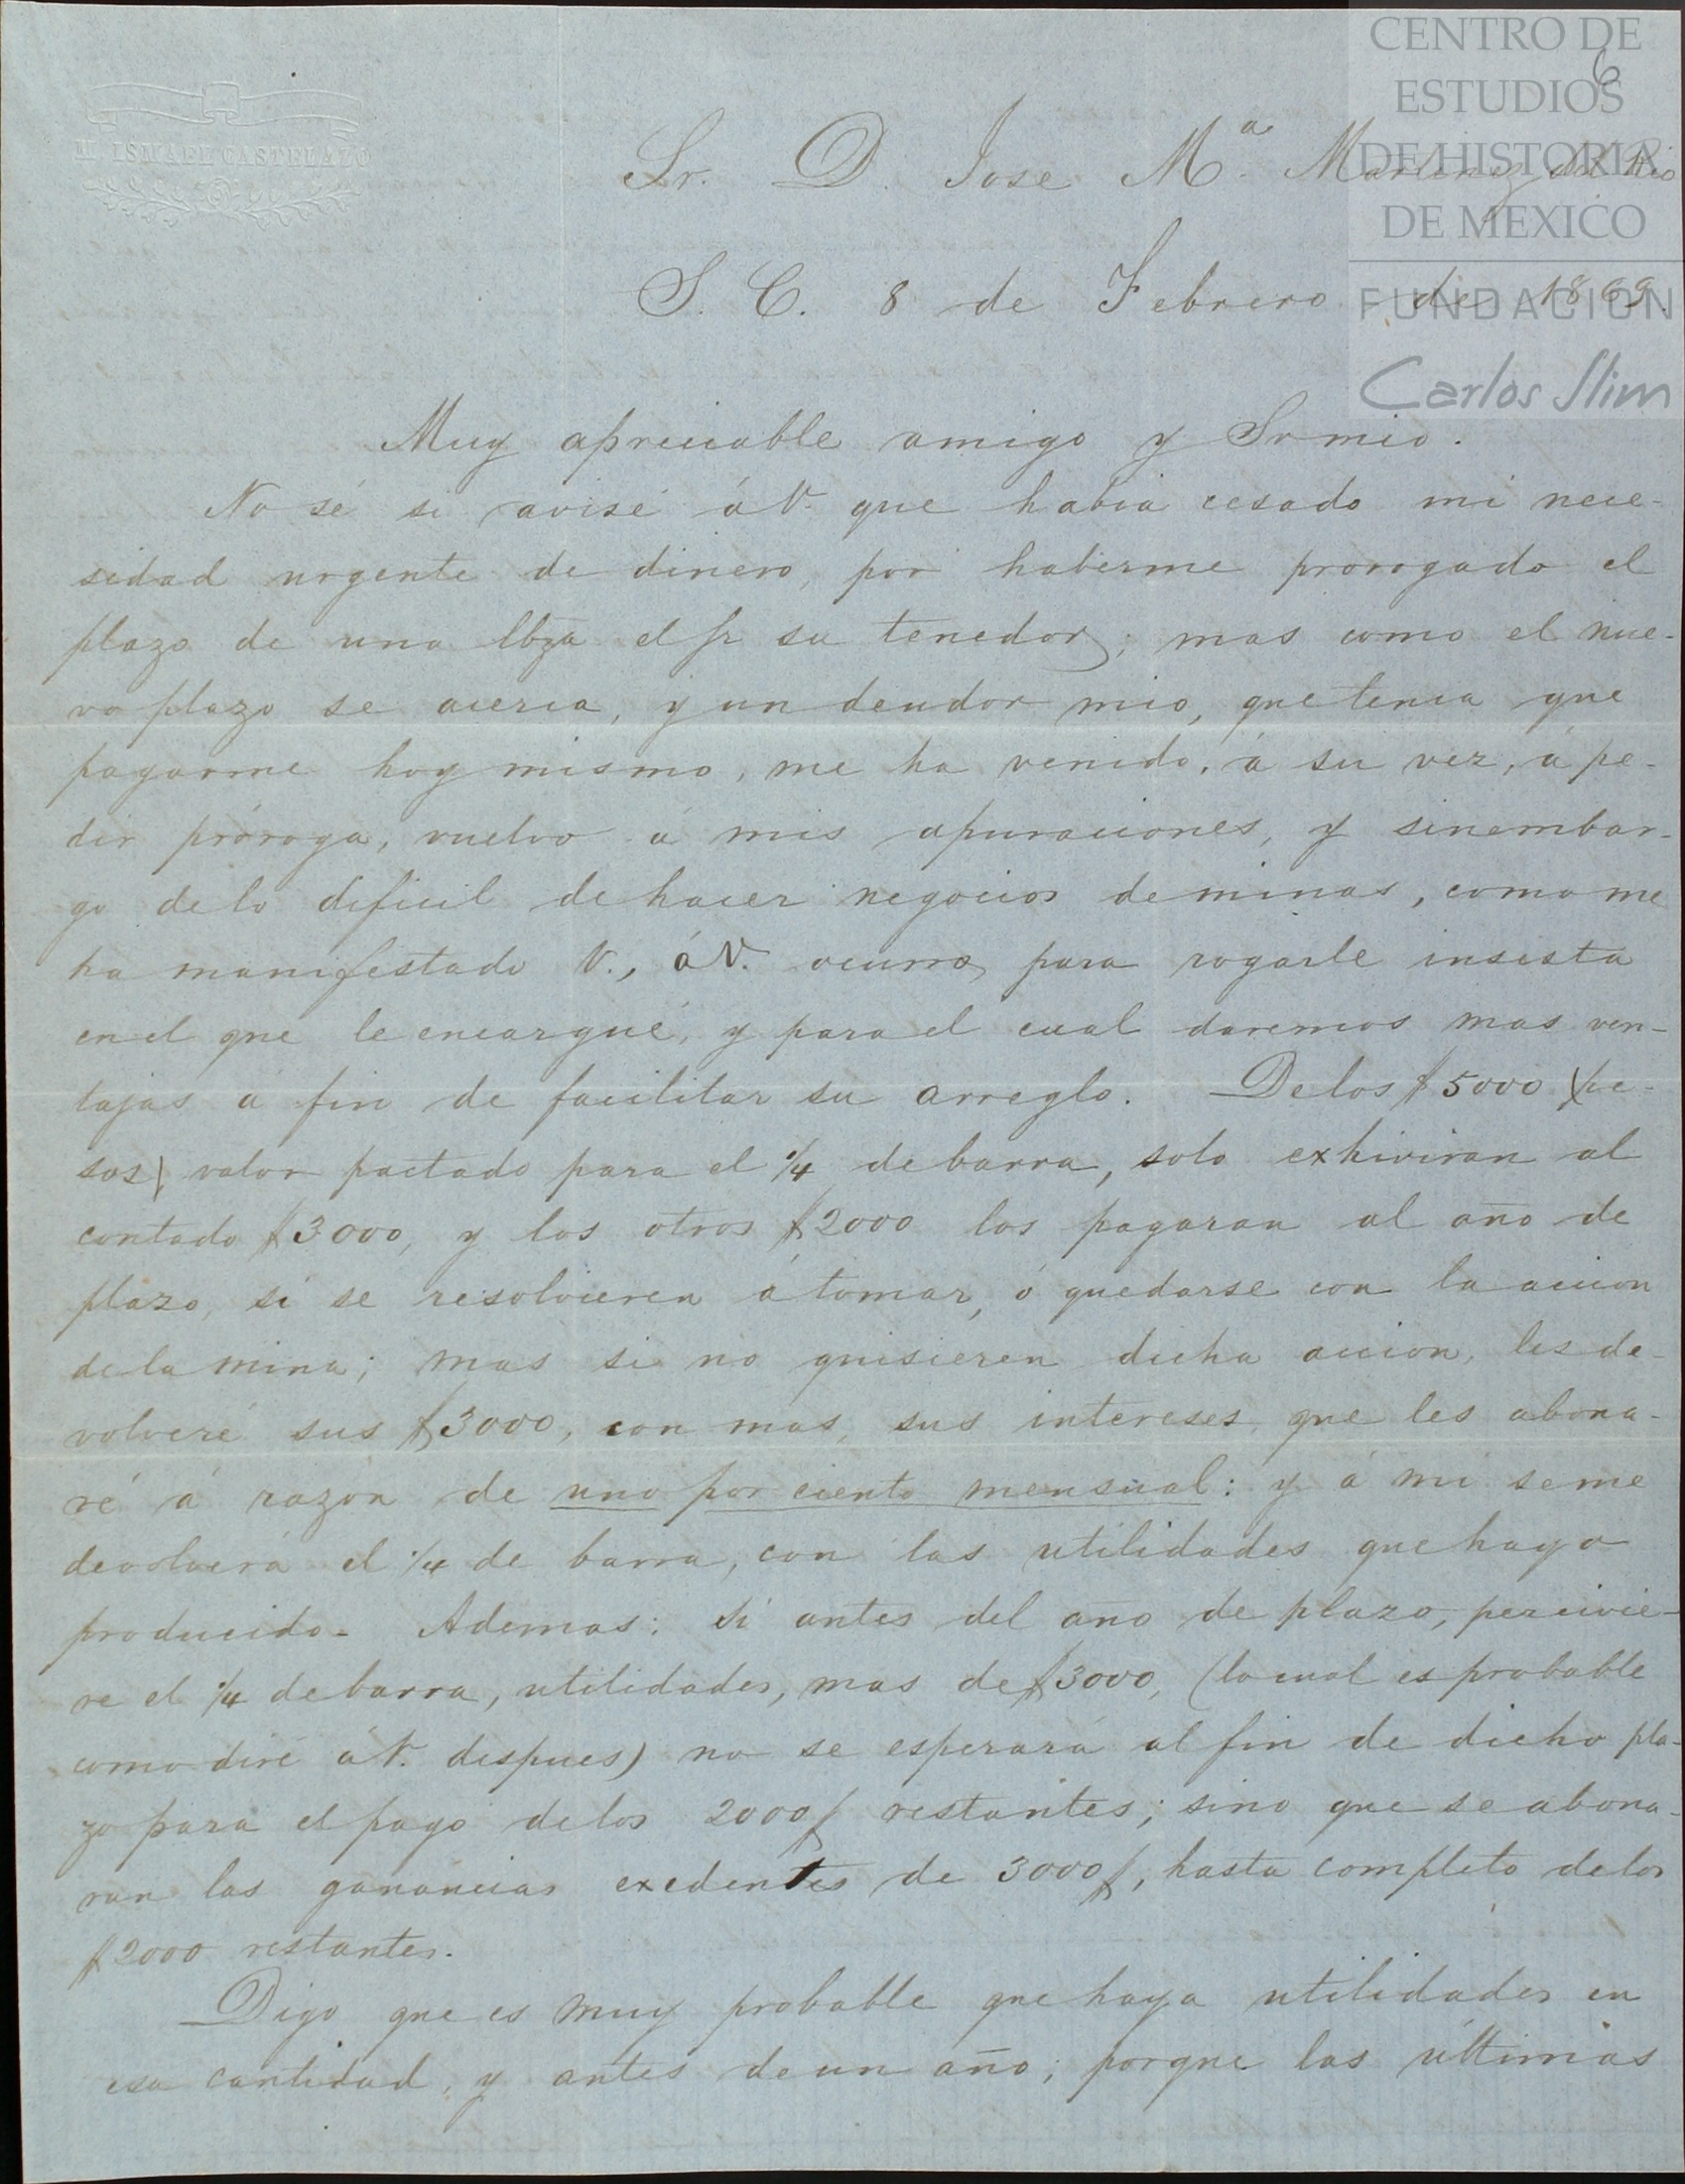 CENTRO DE
ESTUDIOS
DE HISTORIA
DE MEXICO
FUNDACION
Carlos Slim
6
M. ISMAEL CASTELAZO
Sr. D. Jose Mª. Martinez del Rio
S. C. 8 de Febrero de 1869.
Muy apreciable amigo y Sr mio.
No sé si avisé á V. que habia cesado mi nece-
sidad urgente de dinero, por haberme prorogado el
plazo de una lbza el Sr su tenedor; mas como el nue-
vo plazo se acerca, y un deudor mio, que tenia que
pagarme hoy mismo, me ha venido, á su vez, á pe-
dir próroga, vuelvo á mis apuraciones, y sinembar-
go delo dificil de hacer negocios de minas, como me
ha manifestado V., á V. ocurro, para rogarle insista
en el que le encargué, y para el cual daremos mas ven-
tajas á fin de facilitar su arreglo. Delos $5000 (pe-
sos) valor pactado para el 1/4 de barra, solo exhiviran al
contado $3000, y los otros $2000 los pagaran al año de
plazo, si se resolvieren á tomar, ó quedarse con la accion
de la mina; mas si no quisieren dicha accion, les de-
volveré sus $3000, con mas, sus intereses que les abona-
ré á razón de uno por ciento mensual: y á mi se me
devolverá el 1/4 de barra, con las utilidades que haya
producido. Ademas: si antes del año de plazo, percivie-
re el 1/4 de barra, utilidades, mas de $3000, (lo cual es probable
como diré á V. despues) no se esperará al fin de dicho pla-
zo para el pago delos 2000$ restantes; sino que se abona-
ran las ganancias exedentes de 3000$, hasta completo delos
$2000 restantes.
Digo que es muy probable que haya utilidades en
esa cantidad, y antes de un año; porque las últimas